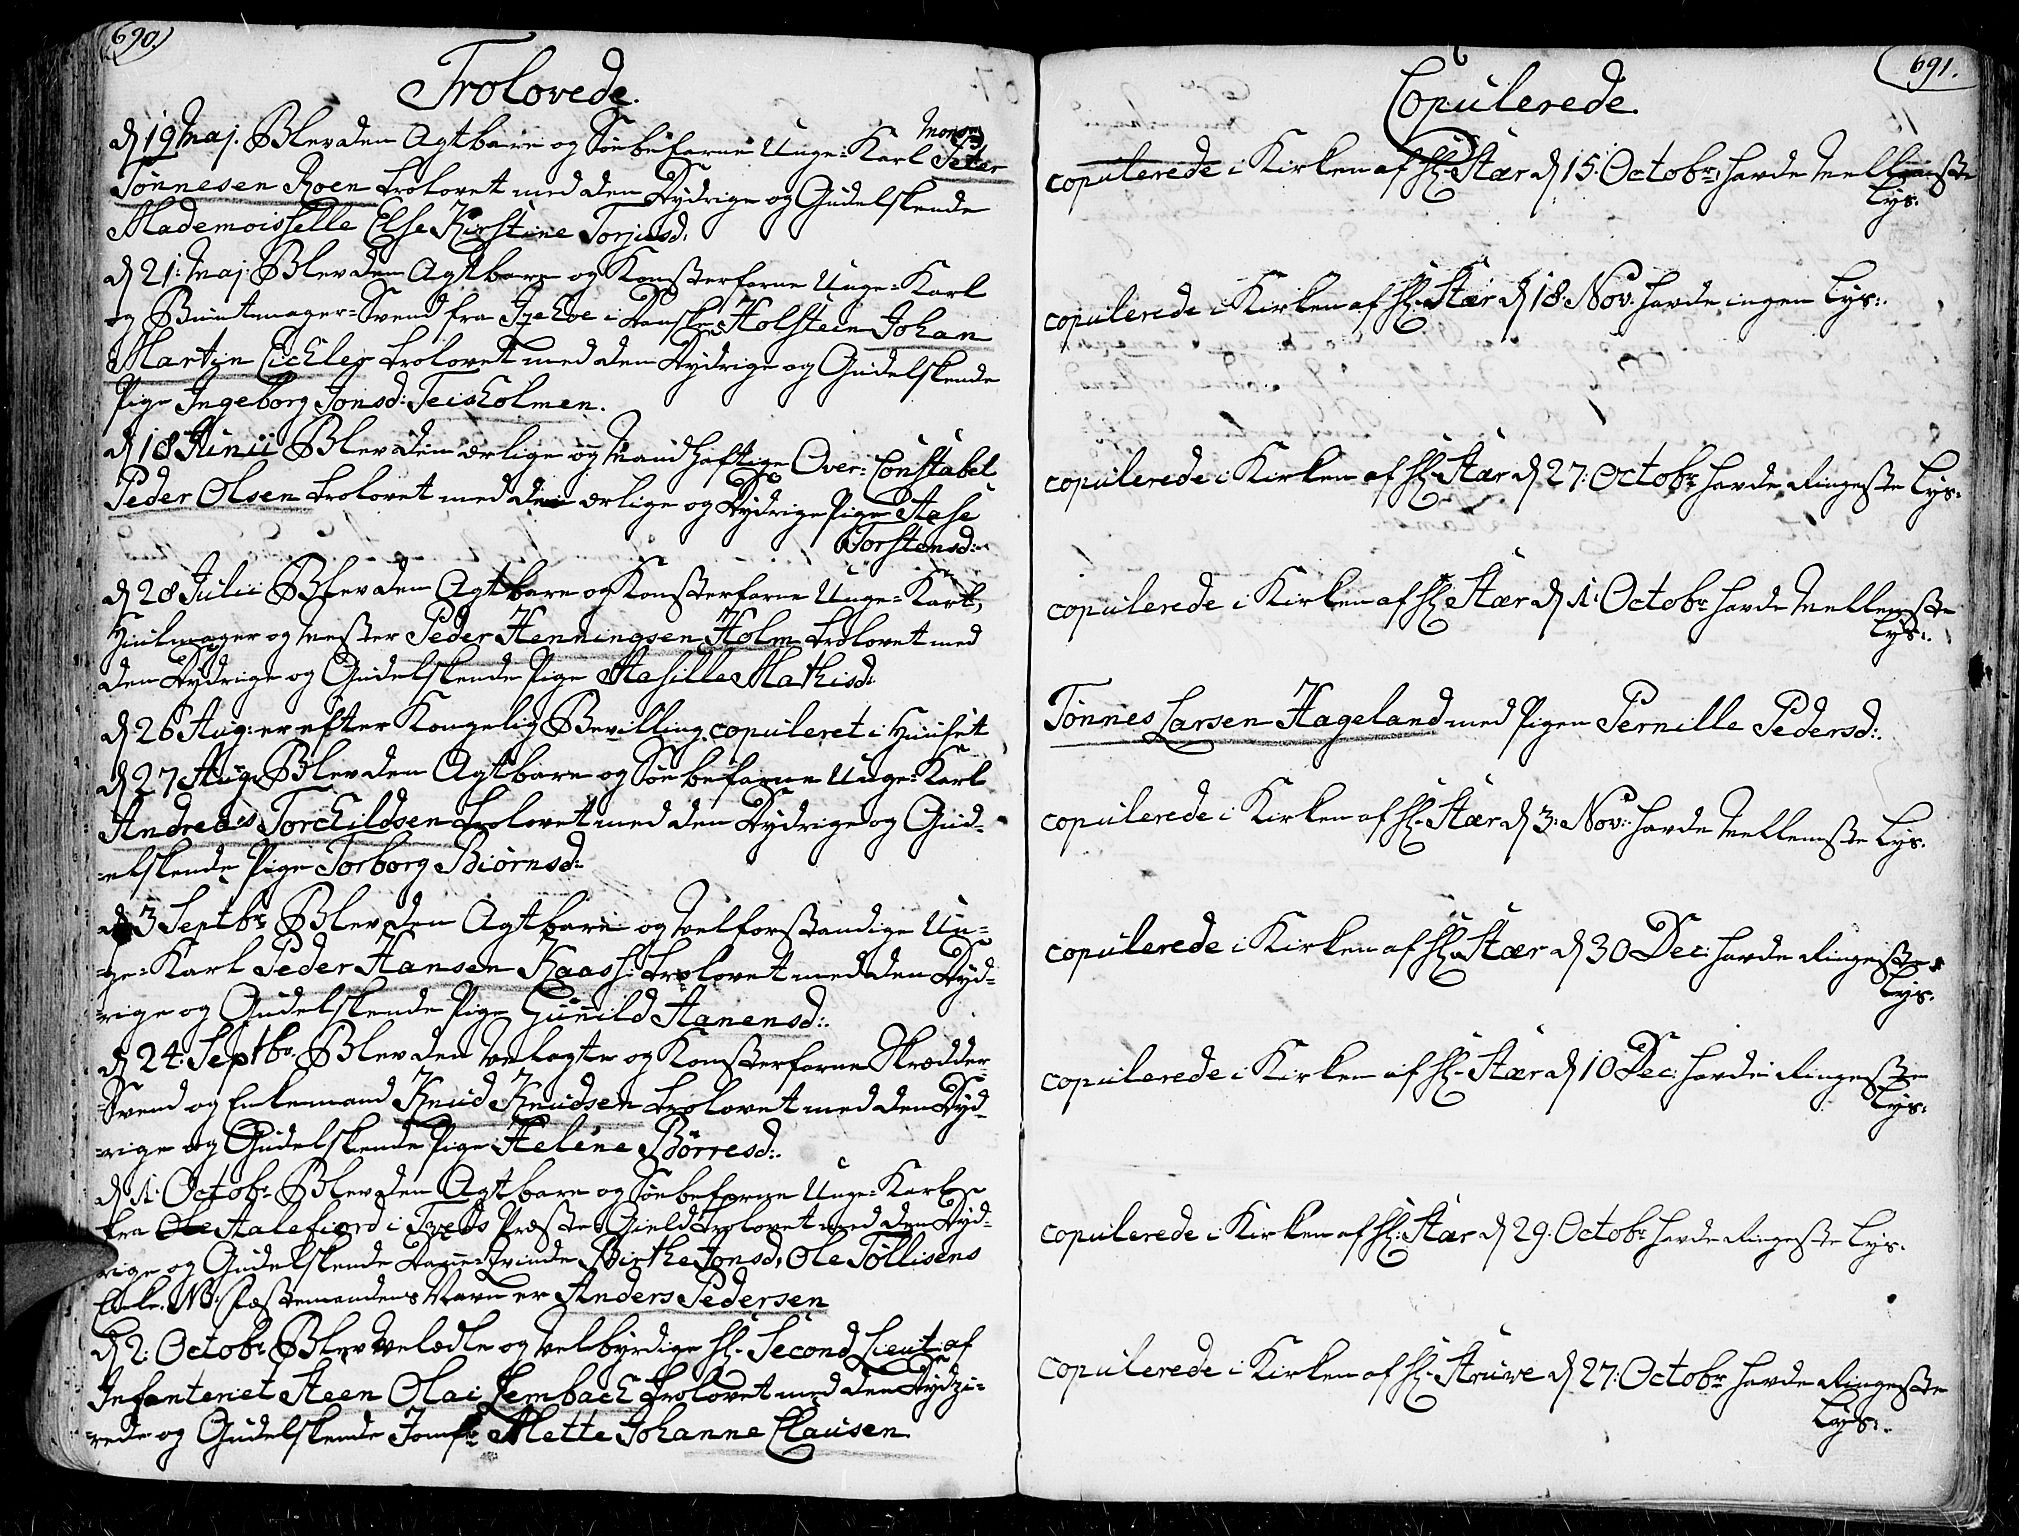 690.
Trolovede.
d 19 Maj. Blev den Agtbare og Søebefarne Unge-Karl Monsr Peter
Tönnesen Roen trolovet med den Dydrige og Gudelskende
Mademoisselle Else Kirstine Torjusd:
d 21: Maj: Blev den Agtbare og Konsterfarne Unge-Karl
og Buntmager-Svend fra Izehoe i Danske Holstein Johan
Martin Eichler trolovet med den Dydrige og Gudelskende
Pige Ingeborg Jonsd: Teisholmen.
d 18 Junii Blev den ærlige og Mandhaftige Over-Constabel
Peder Olsen trolovet med den ærlige og Dydrige Pige Aase
Torstensd:
d 28 Julii Blev den Agtbare og Konsterfarne Unge-Karl,
Hiulmager og Mester Peder Henningsen Holm trolovet med
den Dydrige og Gudelskende Pige Aasille Mathisd:
d 26 Aug: er efter Kongelig Bevilling copuleret i Huuset
d 27 Aug: Blev den Agtbare og Søebefarne Unge-Karl
Andreas Torchildsen trolovet med den Dydrige og Gud-
-elskende Pige Torborg Biörnsd:
d 3 Septbr Blev den Agtbare og Velforstandige Un-
-ge-Karl Peder Hansen Kaash: trolovet med den Dyd-
-rige og Gudelskende Pige Gunild Hanensd:.
d 24. Septbr. Blev den Velagte og Konsterfarne Skrædder-
-Svend og Enkemand Knud Knudsen trolovet med den Dyd-
-rige og Gudelskende Pige Helene Börresd:.
d 1. Octobr Blev den Agtbare og Søebefarne Unge-Karl
fra Ole Aalefiord i Tveds Præste-Gield trolovet med den Dyd-
rige og Gudelskende Danne-Qvinde Birthe Jonsd, Ole Töllisens
Enke. NB: Fæstemandens Navn er Anders Pedersen
d 2. Octobr Blev Velædle og Velbyrdige Hr. Second Lieut: af
Infanteriet Steen Olai Lembach trolovet med den Dydzi-
rede og Gudelskende Jomfr Mette Johanne Clausen.
691.
Copulerede.
copulerede i Kirken af Hr. Stær d 15. Octobr, havde Mellemste
Lys.
copulerede i Kirken af Hr. Stær d 18. Nov. havde ingen Lys:.
copulerede i Kirken af Hr. Stær d 27: Octobr havde Ringeste Lys:
copulerede i Kirken af Hr. Stær d 1. Octobr havde Mellemste
Lys:.
Tönnes Larsen Hageland med Pigen Pernille Pedersd:.
copulerede i Kirken af Hr. Stær d 3. Nov. havde Mellemste Lys.
copulerede i Kirken af Hr. Stær d 30 Dec: havde Ringeste
Lys.
copulerede i Kirken af Hr. Stær d 10 Dec: havde Ringeste
Lys.
copulerede i Kirken af Hr. Stær d 29. Octobr havde Ringeste Lys.
copulerede i Kirken af Hr. Struve d 27. Octobr havde Ringeste
Lys:.